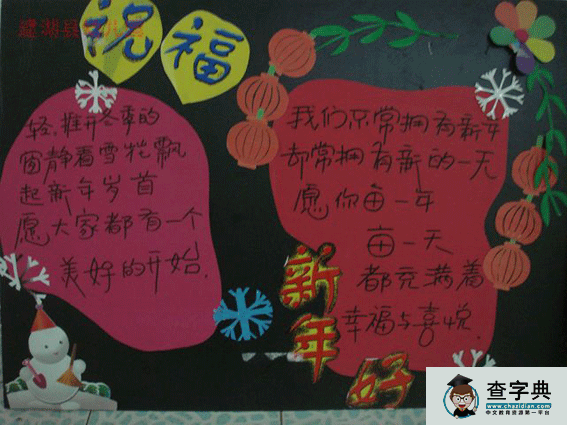 建湖县
祝福
轻,推开冬季的
窗静看雪花飘
起新年岁首
愿大家都有一个
美好的开始.
我们不常拥有新年
却常拥有新的一天
愿你每一年
每一天
都充满着
幸福与喜悦.
新年好
查字典
www.chazidian.com